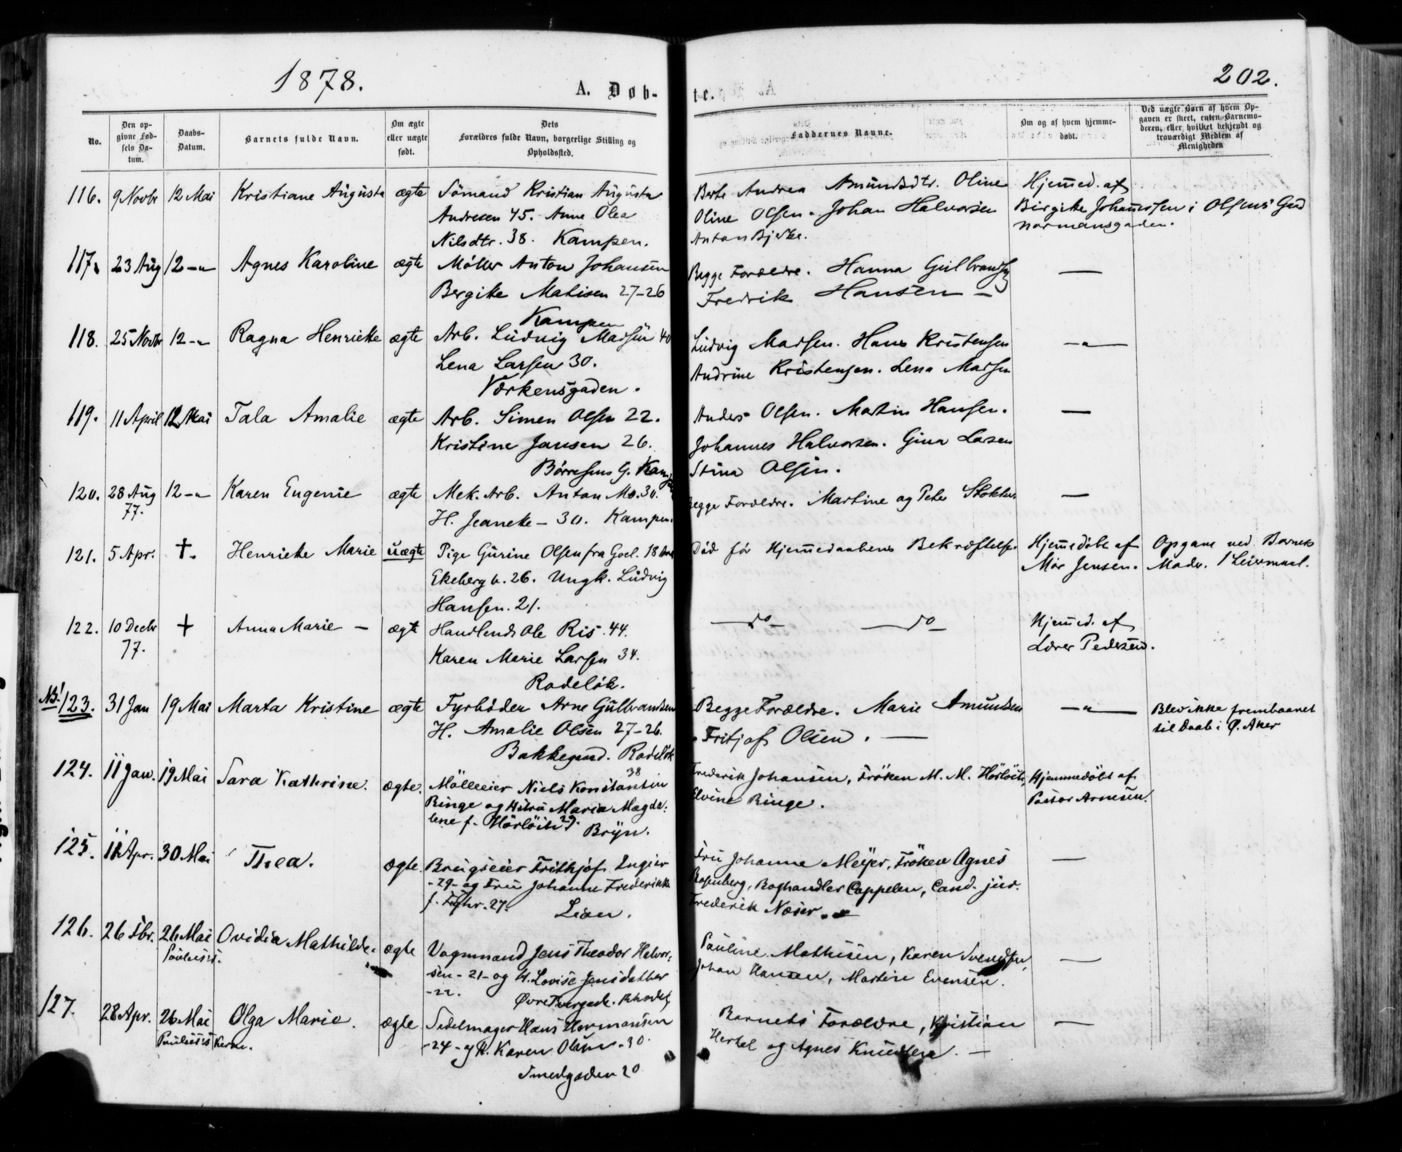 1878.
A. Døbte.
202.
No.
Den opgivne Fødsels Datum.
Daabs-Datum.
Barnets fulde Navn.
Om ægte eller uægte født.
Dets Forældres fulde Navn, borgerlige Stilling og Opholdssted.
Faddernes Navne.
Om og af hvem hjemmedøbt.
Ved uægte Børn af hvem Opgaven er skeet, enten Barnemoderen, eller hvilket bekjendt og troværdigt Medlem af Menigheden
116. 9 Novbr 12 Mai Kristiane Augusta ægte Sømand Kristian Augusta Berte Andrea Amundsdtr. Oline Hjemmed. af
Andresen 45. Anne Olea Oline Olsen. Johan Halvorsen Birgitte Johannesen i Olsens Gd
Nilsdtr. 38. Kampen. Anton Bjerke. Normansgaden.
117. 23 Aug 12 -"- Agnes Karoline ægte Møller Anton Johansen Begge Forældre. Hanna Gulbrands —
Bergite Matisen 27-26 Fredrik Hansen —
Kampen
118. 25 Novbr 12 -"- Ragna Henriette ægte Arb. Ludvig Madsen 40 Ludvig Madsen. Hans Kristensen —"—
Lena Larsen 30. Andrine Kristensen. Lena Madsen
Værkensgaden.
119. 11 April 12 Mai Tala Amalie ægte Arb. Simen Olsen 22. Anders Olsen. Martin Hansen. —
Kristine Jansen 26. Johannes Halvorsen. Gina Larsen
Børresens G. Kampen Stina Olsen.
120. 28 Aug 12 -"- Karen Eugenie ægte Mek. Arb. Anton Mo. 30. Begge Forældre. Martine og Peter —
77. H. Jeanette - 30. Kampen.
121. 5 Apr. †. Henriette Marie uægte Pige Gurine Olsen fra Død før Hjemmedaabens Bekræftelse Hjemmedøbt af Opgave ved Barnets
Ekeberg 26. Ungk. Ludvig Mor Jensen. Madr.
Hansen. 21.
122. 10 Decbr † Anna Marie — ægte Handlende Ole Ris. 44. —do— —do— Hjemmed. af
77. Karen Marie Larsen 34. Lærer Pedersen.
Rodeløk.
NB! 123. 31 Jan 19 Mai Marta Kristine ægte Fyrbøder Arne Gulbrandsen Begge Forældre. Marie Amundsen —"— Blev ikke frembaaret
H. Amalie Olsen 27-26. Fritjof Olsen. — til Daab i Ø. Aker
Bakkegaad. Rodeløk
124. 11 Jan. 19 Mai Sara Kathrine. ægte. Mølleeier Niels Konstantin 38 Frederik Johansen, Frøken M. M. Hørløck, Hjemmedøbt af
Binge og Hustru Maria Magdalene f. Hørløck 29. Elvine Binge. Pastor Arnesen.
Bryn.
125. 11 Apr. 30 Mai Thea. ægte Brugseier Frithjof Fru Johanne Meyer, Frøken Agnes —
-29- og Fru Johanne Frederikke Rosenberg, Boghandler Cappelen, Cand. jur.
27. Lian. Frederik Næser.
126. 26 Fbr. 26 Mai Ovidia Mathilde. ægte Vognmand Jens Theodor Halvorsen Pauline Mathisen, Karen Svendsen, —
Paulus K. -21- og H. Lovise Jensdatter Johan Hansen, Martin Evensen.
-22.
127. 28 Apr. 26 Mai Olga Marie. ægte Sadelmager Hans Hermansen Barnets Forældre, Kristian —
Paulus's Kirke. -24- og H. Karen Olsen -30. Hertel og Agnes Knudsen. —
Smedgaden 20